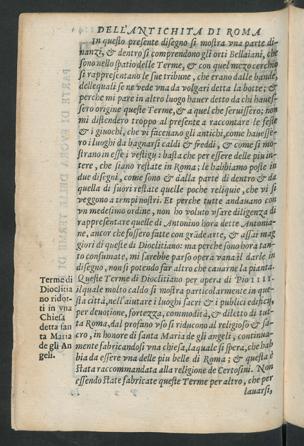 DELL'ANTICHITA DI ROMA
In questo presente disegno si mostra vna parte di-
nanzi, & dentro si comprendono gli orti Bellaiani, che
sono nello spatio delle Terme, & con quel mezo cerchio
si rappresentano le sue tribune, che erano dalle bande,
delle quali se ne vede vna da volgari detta la botte; &
perche mi pare in altro luogo hauer detto da chi hauess-
sero origine queste Terme, & a quel che seruissero; non
mi distendero troppo al presente a raccontare le feste
& i giuochi, che vi faceuano gli antichi, come hauesse-
ro i luoghi da bagnarsi caldi & freddi, & come si mo-
strano in esse i vestigij: basta che per essere delle piu in-
tere, che siano restate in Roma; le habbiamo poste in
due disegni, come sono & dalla parte di dentro & da
quella di fuori restate quelle poche reliquie, che vi si
veggono a tempi nostri. Et perche tutte andauano con
vn medesimo ordine, non ho voluto vsare diligenza di
rappresentare quelle di Antonino hora dette Antonia-
ne, ancor che fossero fatte con grãde arte, & assai mag
giori di queste di Dioclitiano: ma perche sono hora tan-
to consumate, mi sarebbe parso opera vana il darle in
disegno, non si potendo far altro che cauarne la pianta.
Queste Terme di Dioclitiano per opera di Pio 1 1 1 1.
ilquale molto caldo si mostra particolarmente in que-
sta città, nell'aiutare i luoghi sacri & i publici edificij,
per deuotione, fortezza, commodità, & diletto di tut-
ta Roma, dal profano vso si riducono al religioso & sa-
cro, in honore di santa Maria de gli angeli, continua-
mente fabricandosi vna chiesa, laquale si spera, che hab
bia da essere vna delle piu belle di Roma; & questa è
stata raccommandata alla religione de Certosini. Non
essendo state fabricate queste Terme per altro, che per
lauarsi,
Terme di
Dioclitia
no ridot-
ti in vna
Chiesa
detta san
ta Maria
de gli An
geli.